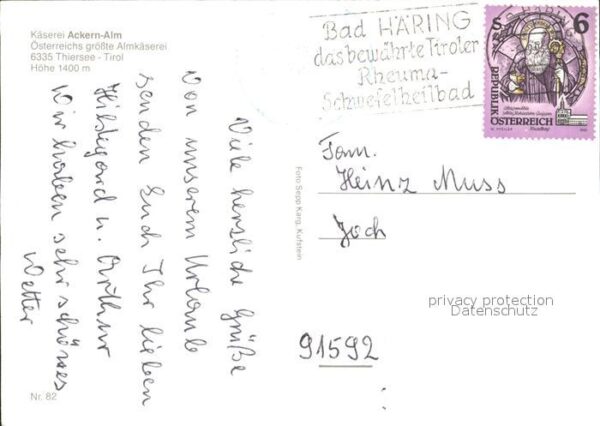 Käserei Ackern-Alm
Österreichs größte Almkäserei
6335 Thiersee - Tirol
Höhe 1400 m
Viele herzliche Grüße
von unserem Urlaub
senden Euch Ihr lieben
Hildegard u. Arthur
Wir haben sehr schönes
Wetter
Nr. 82
Foto Sepp Karg, Kufstein
Bad HÄRING
das bewährte Tiroler
Rheuma-
Schwefelheilbad
S 6
REPUBLIK
ÖSTERREICH
Fam.
Heinz Muss
Joch
privacy protection
Datenschutz
91592